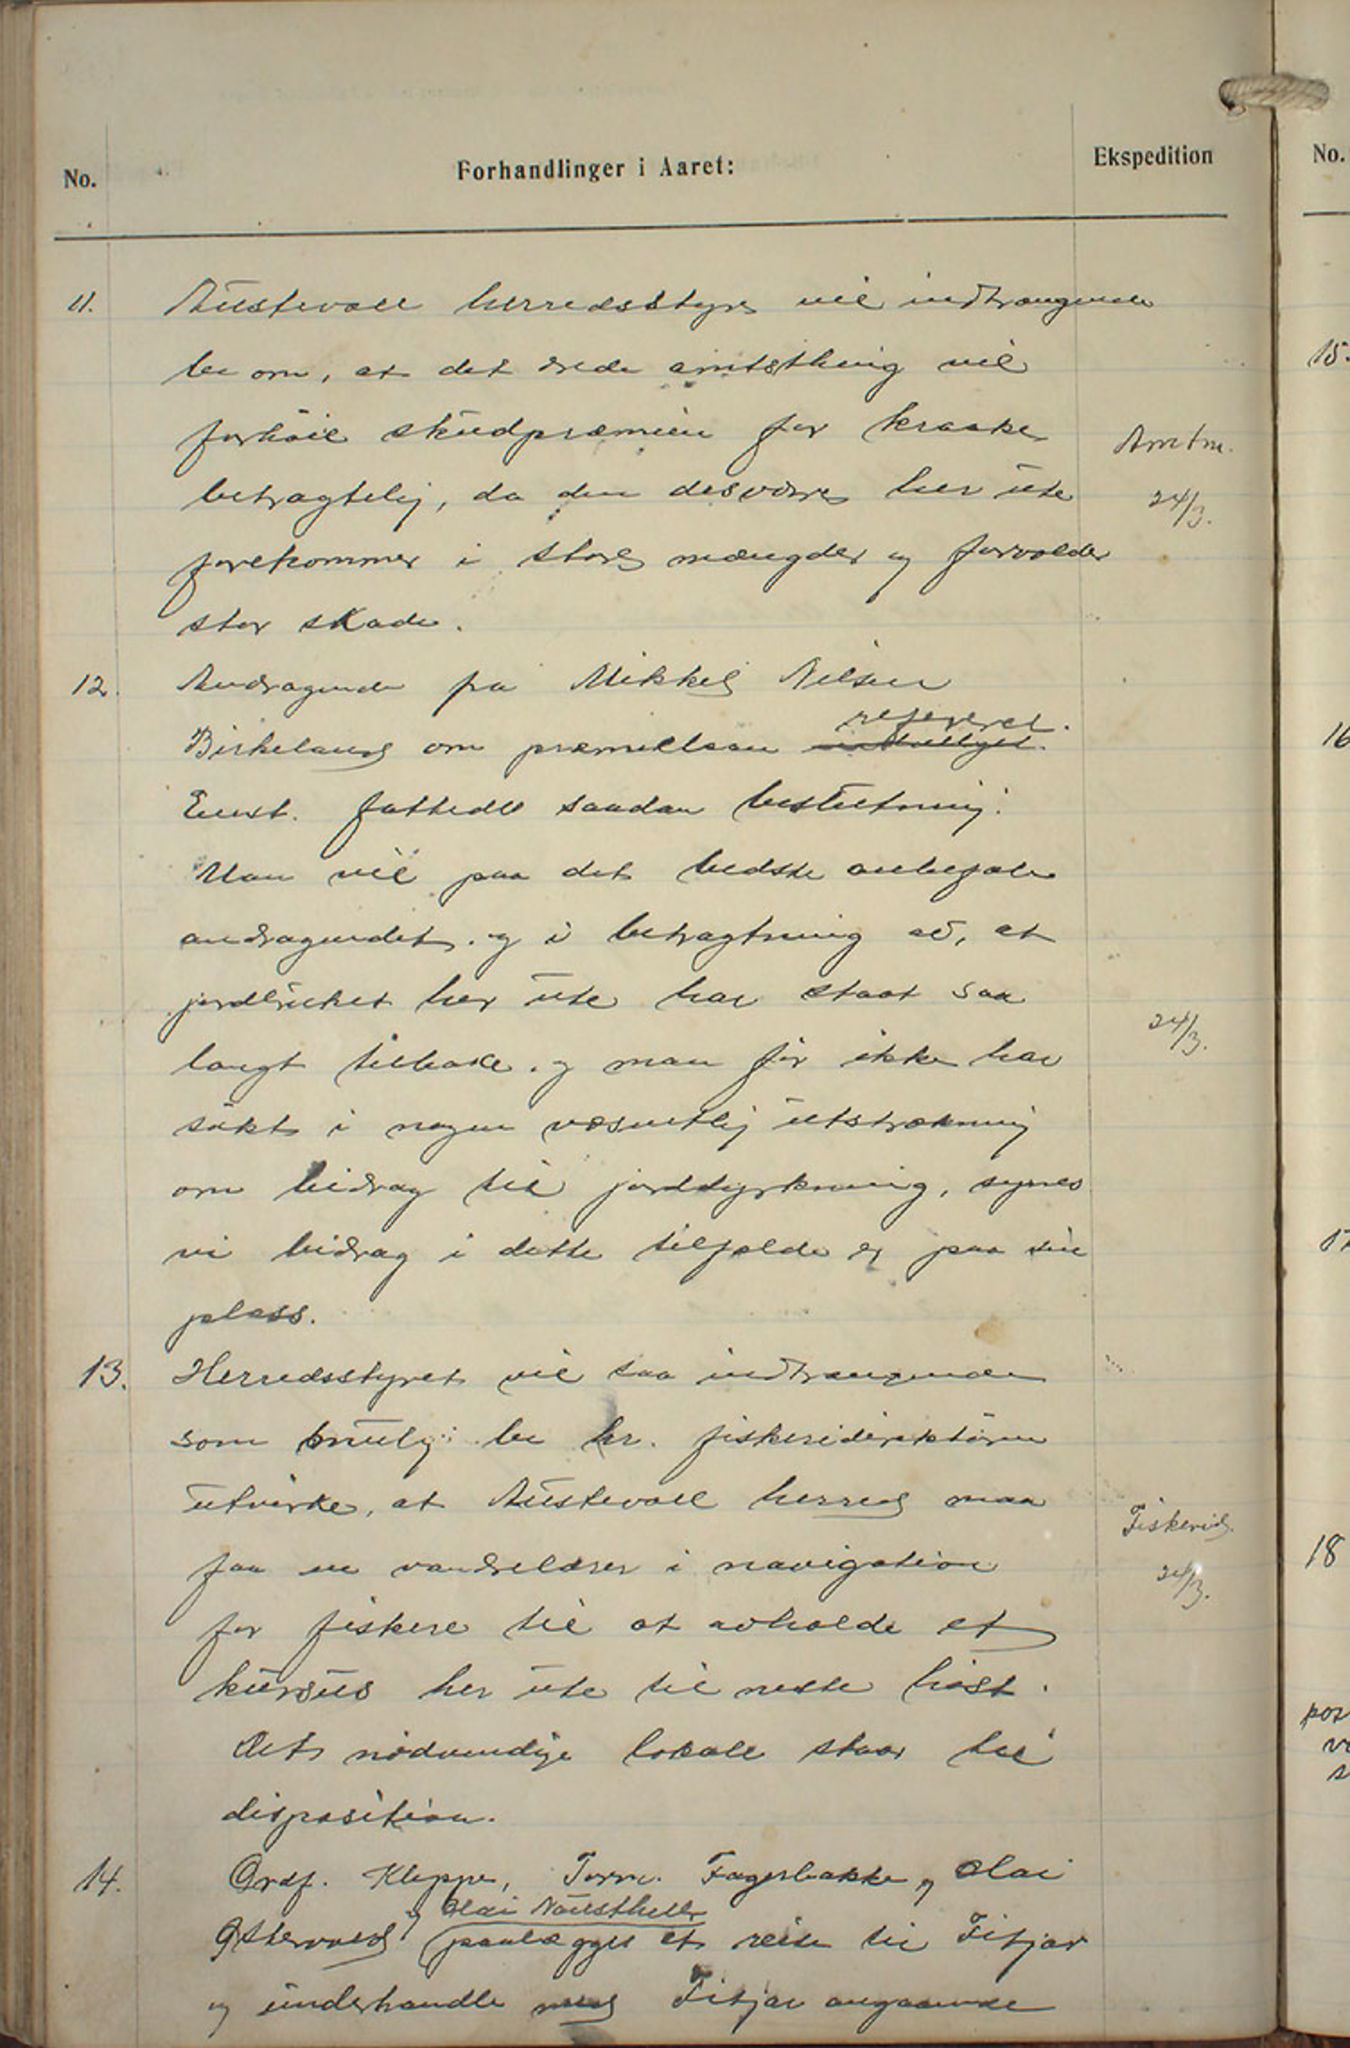 No.
Forhandlinger i Aaret:
Ekspedition
No.
11.
Austevoll herredsstyre vil indtrængende
be om, at det ærede amtsthing vil
forhöie skudpræmien for kraake
betragtelig, da den desværre her ute
forekommer i store mængder og forvolder
stor skade.
Amtm.
24/3.
12.
Andragende fra Mikkel Nilsen
refereret.
Birkeland om præmielaan
Enst. fattedes saadan beslutning:
Man vil paa det bedste anbefale
andragendet og i betragtning av, at
jordbruket her ute har staat saa
langt tilbake og man för ikke har
sökt i nogen væsentlig utstrækning
om bidrag til jorddyrkning, synes
vi bidrag i dette tilfælde er paa sin
plass.
24/3.
13.
Herredsstyret vil saa indtrængende
som mulig be hr. fiskeridirektören
utvirke, at Austevoll herred maa
faa en vandrelærer i navigation
for fiskere til at avholde et
kursus her ute til neste höst.
Det nödvendige lokale staar til
disposition.
Fiskerid.
24/3.
14.
Ordf. Kleppe, Torm. Fagerbakke og Olai
og Olai Nausthella
Östervold paalægges at reise til Fitjar
og underhandle med Fitjar angaaende
15.
16
17
18